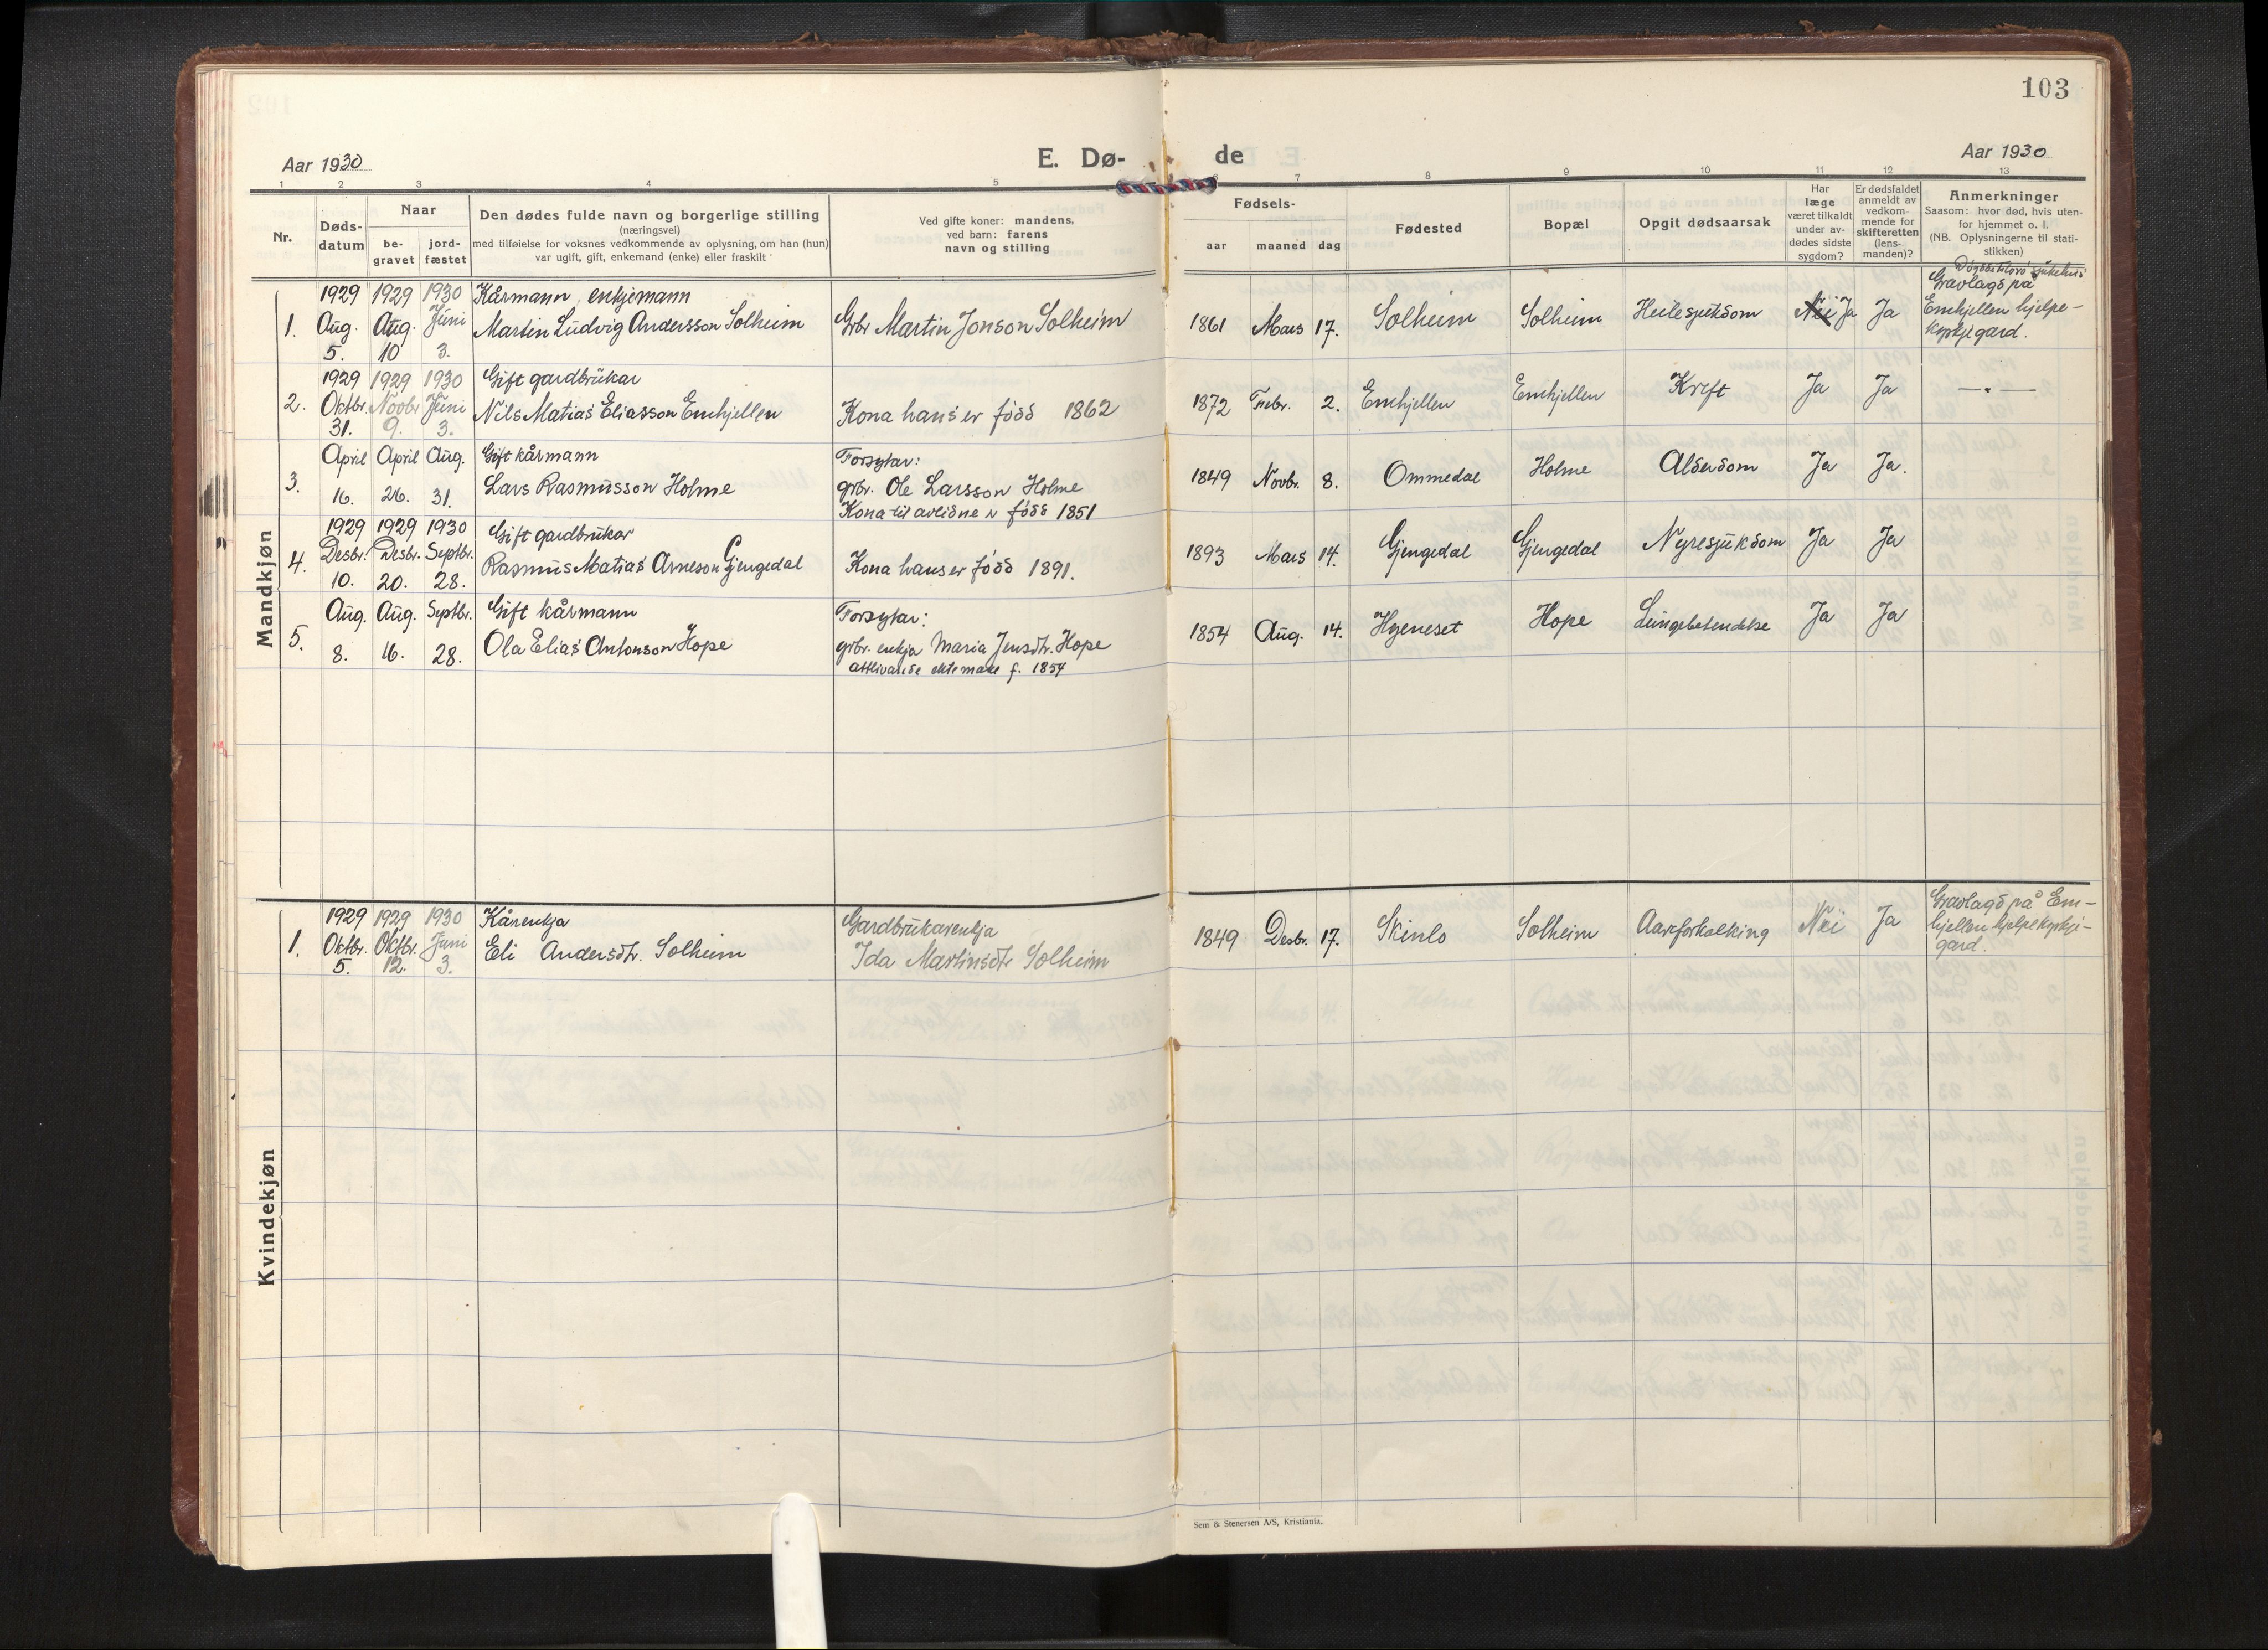 103
Aar 1930
E. Dø-
de
Aar 1930
1 2 3 4 5 6 7 8 9 10 11 12 13
Nr.
Døds-
datum
Naar
be-
gravet
jord-
fæstet
Den dødes fulde navn og borgerlige stilling
(næringsvei)
med tilføielse for voksnes vedkommende av oplysning, om han (hun)
var ugift, gift, enkemand (enke) eller fraskilt
Ved gifte koner: mandens,
ved barn: farens
navn og stilling
Fødsels-
aar maaned dag
Fødested
Bopæl
Opgit dødsaarsak
Har
læge
været tilkaldt
under av-
dødes sidste
sygdom?
Er dødsfaldet
anmeldt av
vedkom-
mende for
skifteretten
(lens-
manden)?
Anmerkninger
Saasom: hvor død, hvis uten-
for hjemmet o. l.
(NB. Oplysningerne til stati-
stikken)
Mandkjøn
1929 1929 1930 Kårmann, enkjemann
1. Aug. Aug. Juni Martin Ludvig Andersson Solheim Grbr Martin Jonson Solheim 1861 Mars 17. Solheim Solheim Nei Ja Ja
5. 10 3.
sjukehus
Gravlagd på
Emhjellen hjelpe-
kyrkjegard.
1929 1929 1930 Gift gardbrukar
2. Oktbr. Novbr Juni Nils Matias Eliasson Emhjellen Kona hans er født 1862 1872 Febr. 2. Emhjellen Emhjellen Kreft Ja Ja — " —
31. 9. 3.
April April Aug. Gift kårmann Forsytar:
3. 16. 26. 31. Lars Rasmusson Holme grbr. Ole Larsson Holme 1849 Novbr. 8. Ommedal Holme Alderdom Ja Ja.
Kona til avlidne er fødd 1851
1929 1929 1930 Gift gardbrukar
4. Desbr. Desbr. Septbr. Rasmus Matias Arneson Gjengedal Kona hans er fødd 1891. 1893 Mars 14. Gjengedal Gjengedal Nyresjukdom Ja Ja
10. 20. 28.
Aug. Aug. Septbr. Gift kårmann Forsytar:
5. 8. 16. 28. Ola Elias Antonson Hope grbr. enkja Maria Jensdtr. Hope 1854 Aug. 14. Hyeneset Hope Lungebetendelse Ja Ja
attlivande ektemake f. 1854
Kvindekjøn
1929 1929 1930 Kårenkja Gardbrukarenkja
1. Oktbr. Oktbr. Juni Eli Andersdtr. Solheim Ida Martinsdtr Solheim 1849 Desbr. 17. Skinlo Solheim Aareforkalking Nei Ja
5. 12. 3.
Gravlagd på Em-
hjellen hjelpekyrkje-
gard.
Sem & Stenersen A/S, Kristiania.